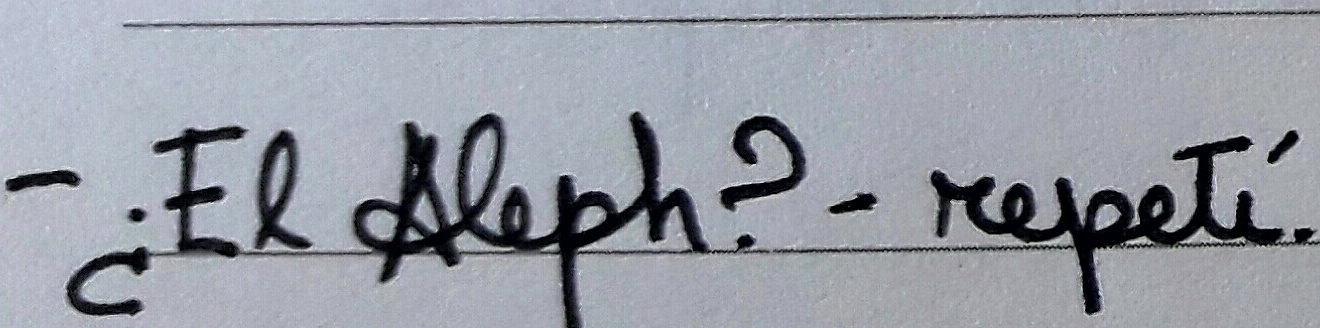 - ¿El Aleph? - repetí.